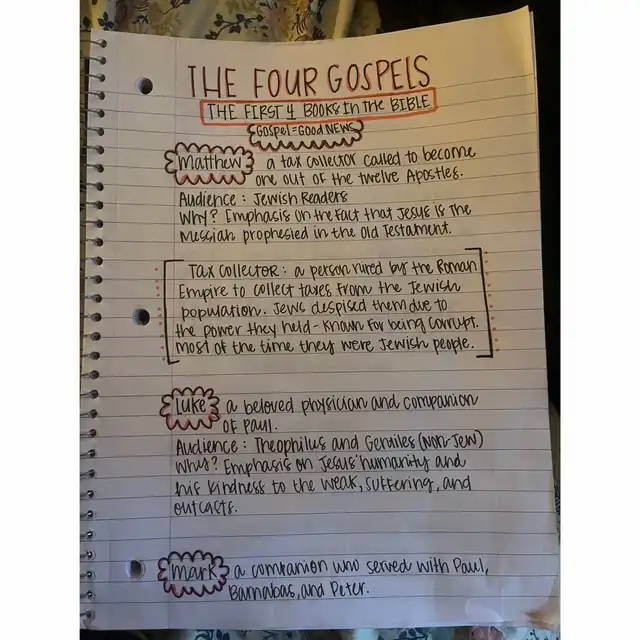 THE FOUR GOSPELS
THE FIRST 4 BOOKS IN THE BIBLE
GOSPEL = GOOD NEWS
Matthew a tax collector called to become
one out of the twelve Apostles.
Audience : Jewish Readers
Why? Emphasis on the fact that Jesus is the
Messiah prophesied in the Old Testament.
Tax Collector : a person hired by the Roman
Empire to collect taxes from the Jewish
population. Jews despised them due to
the power they held - known for being corrupt.
Most of the time they were Jewish people.
Luke a beloved physician and companion
of Paul.
Audience : Theophilus and Gentiles (Non-Jew)
Why? Emphasis on Jesus' humanity and
his kindness to the weak, suffering, and
outcasts.
Mark a companion who served with Paul,
Barnabas, and Peter.